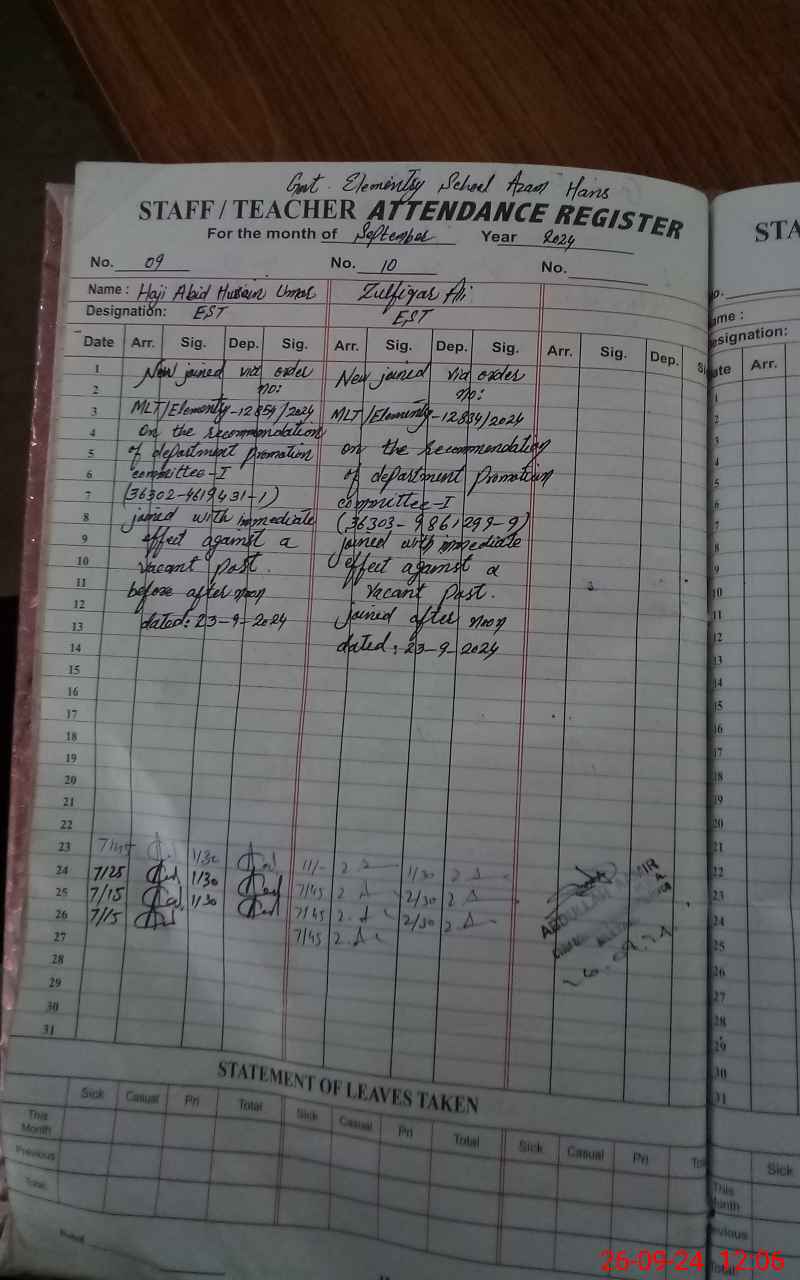 Govt. Elementry School Azam Hans
STAFF / TEACHER ATTENDANCE REGISTER
For the month of September Year 2024
No. 09 No. 10 No.
Name : Haji Abid Hussain Umar Zulfiqar Ali
Designation: EST EST
Date Arr. Sig. Dep. Sig. Arr. Sig. Dep. Sig. Arr. Sig. Dep.
New joined via order
no:
MLT/Elementy-12854/2024
on the recommendation
of department promotion
committee-I
(36302-4619431-1)
joined with immediate
effect against a
vacant post.
before after noon
dated: 23-9-2024
New joined via order
no:
MLT/Elementy-12834/2024
on the recommendation
of department promotion
committee-I
(36303-9861299-9)
joined with immediate
effect against a
vacant post.
joined after noon
dated: 23-9-2024
1
2
3
4
5
6
7
8
9
10
11
12
13
14
15
16
17
18
19
20
21
22
23 7/45 1/30 11/- 1/30
24 7/25 1/30 7/45 2/30
25 7/15 1/30 7/45 2/30
26 7/15 7/45
27
28
29
30
31
STATEMENT OF LEAVES TAKEN
Sick Casual Pri Total Sick Casual Pri Total Sick Casual Pri
This Month
Previous
Total
STA
Designation:
Arr.
1
2
3
4
5
6
7
8
9
10
11
12
13
14
15
16
17
18
19
20
21
22
23
24
25
26
27
28
29
30
31
Sick
This
Month
26-09-24 12:06